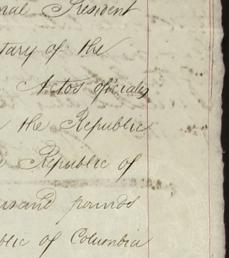 nal President
tary of the
Actos oficiales
the Republic
Republic of
usand pounds
blic of Columbia